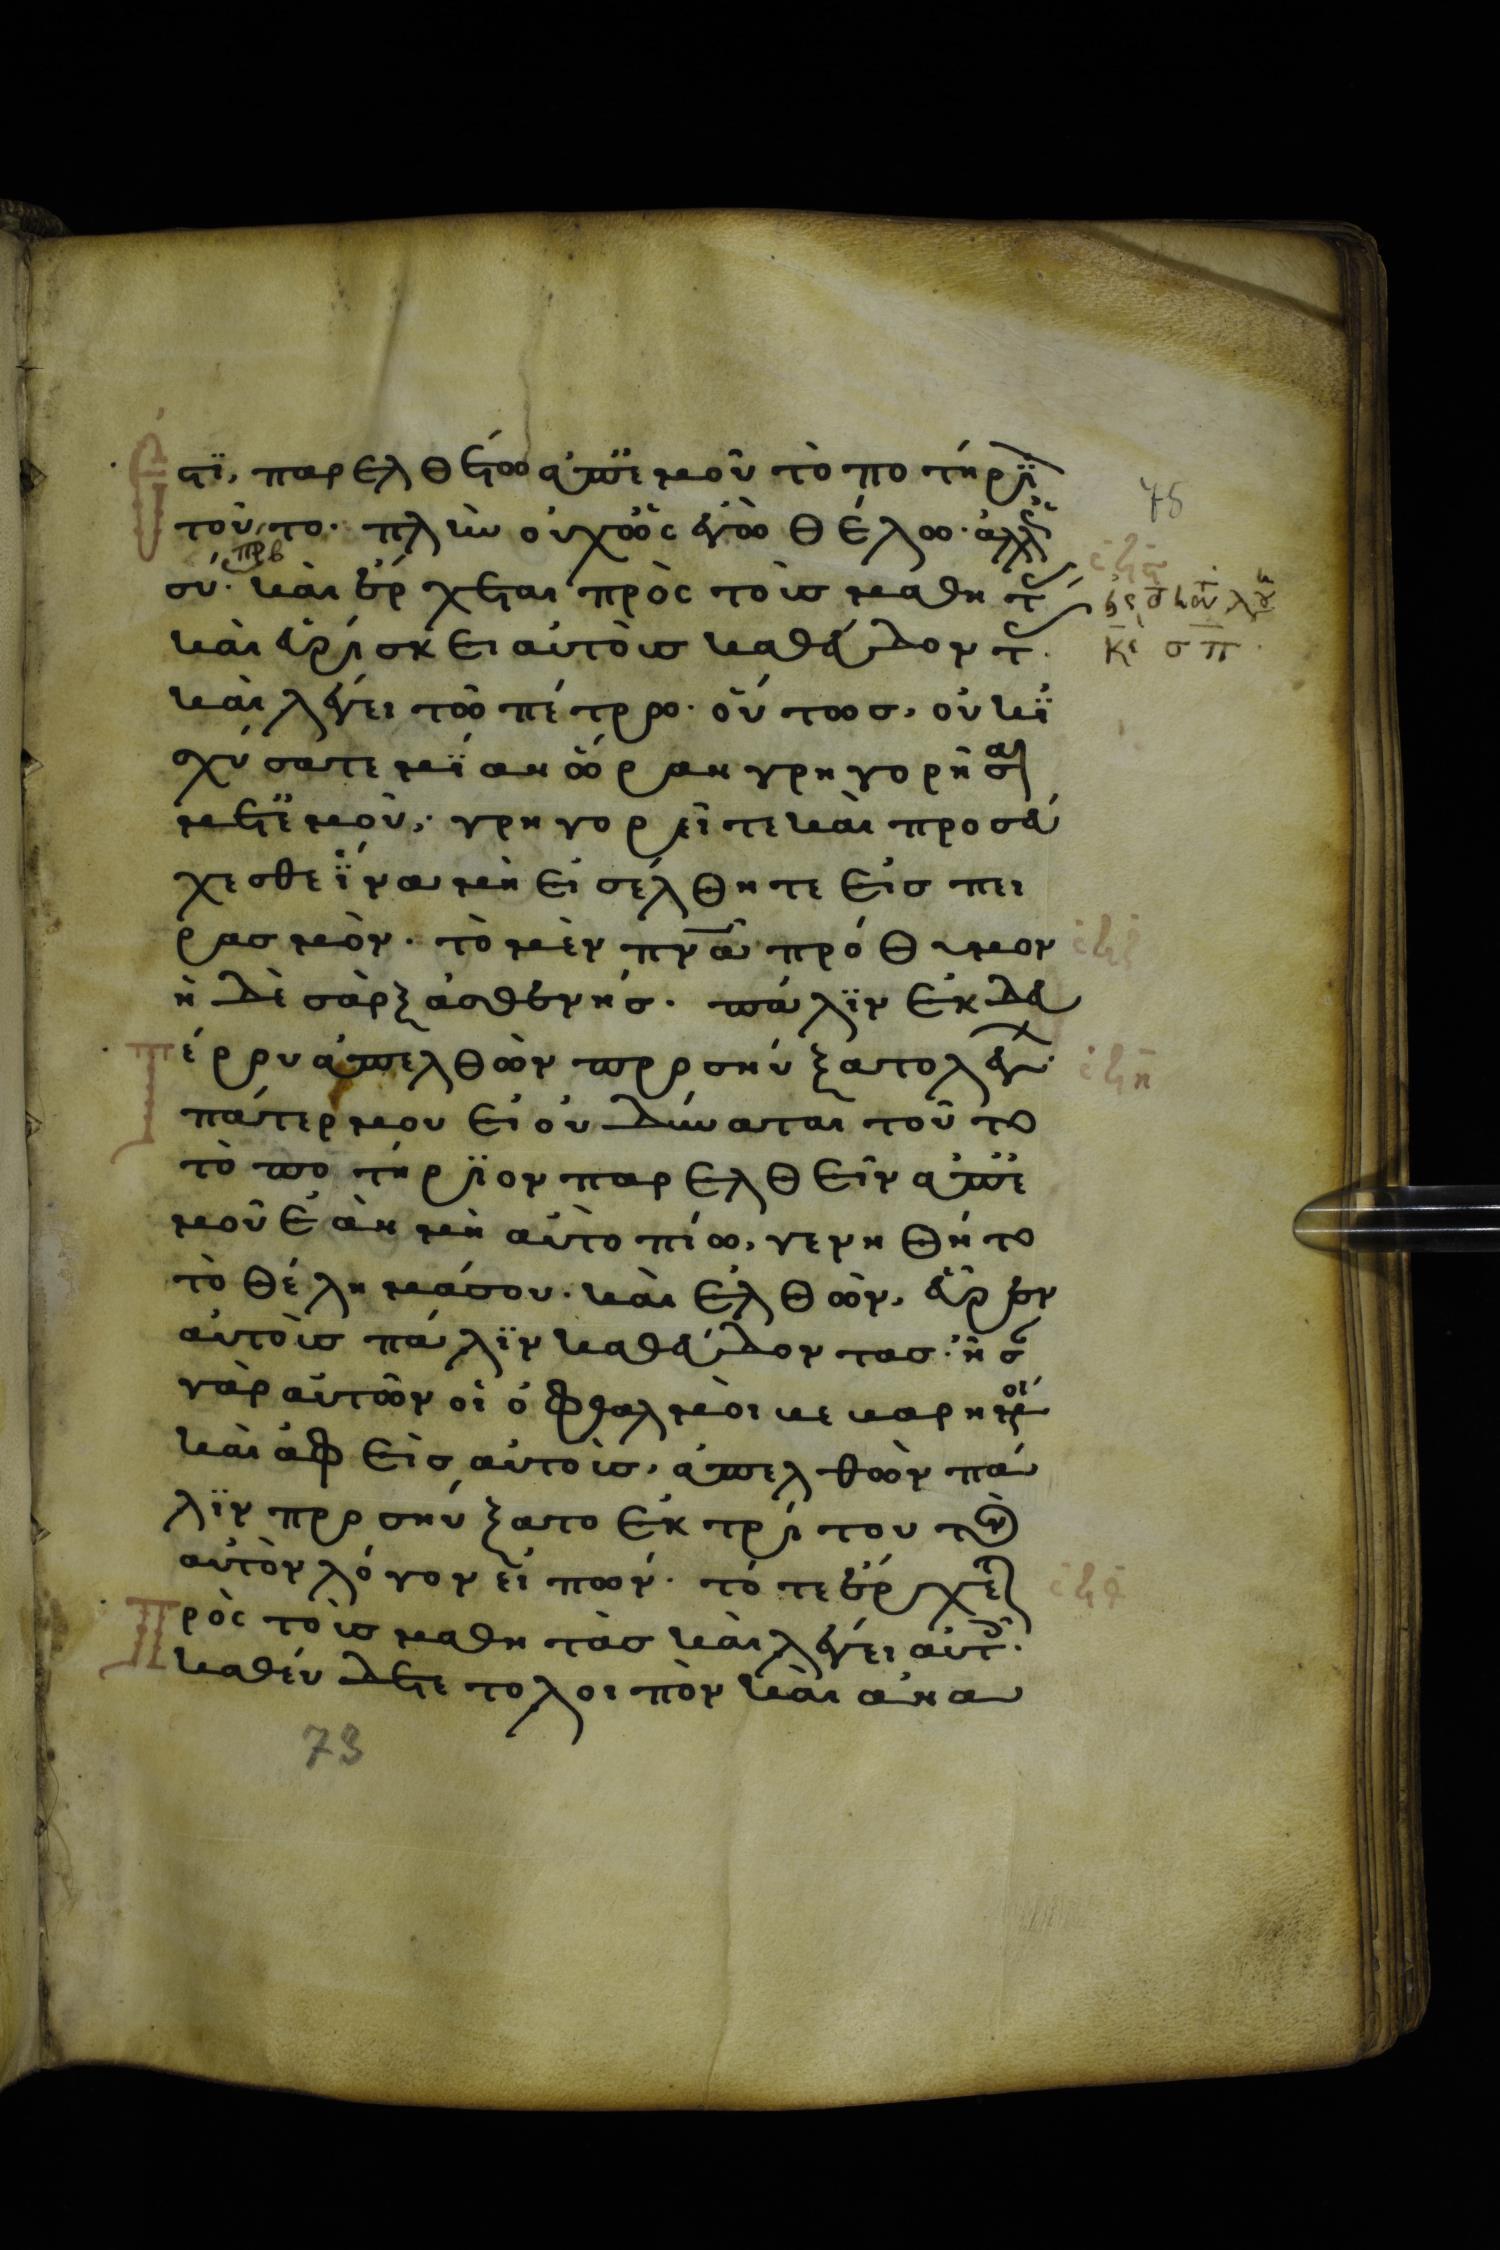 ἐστϊ, παρελθέτω ἀπ' ἐμοῦ τὸ ποτήριο
75
τοῦτο· πλὴν οὐχ ὡς ἐγὼ θέλω· ἀλλ' ὡς
σύ· καὶ ἔρχεται πρὸς τοὺς μαθητὰς
καὶ εὑρίσκει αὐτοὺς καθεύδοντας·
καὶ λέγει τῶ πέτρω· οὕτωσ, οὐκ ϊ
σχύσατε μίαν ὥραν γρηγορῆσαι
μετ' ἐμοῦ; γρηγορεῖτε καὶ προσεύ
χεσθε ἵνα μὴ εἰσέλθητε εἰσ πει
ρασμόν· τὸ μὲν πνᾶ πρόθυμον
ἡ δὲ σὰρξ ἀσθενήσ· πάλϊν ἐκ δευ
τέρου ἀπελθὼν προσηύξατο λέγων·
πάτερ μου εἰ οὐ δύναται τοῦτο
τὸ ποτήριον παρελθεῖν ἀπ' ἐ
μοῦ ἐὰν μὴ αὐτὸ πίω, γενηθήτω
τὸ θέλημά σου· καὶ ἐλθὼν, εὗρεν
αὐτοὺσ πάλϊν καθεύδοντασ· ἦσαν
γὰρ αὐτῶν οἱ ὀφθαλμοὶ βεβαρημένοι
καὶ ἀφεὶσ αὐτοὺσ, ἀπελθὼν πά
λϊν προσηύξατο ἐκ τρίτου τὸν
αὐτὸν λόγον εἰπών· τότε ἔρχεται
πρὸς τοὺσ μαθητὰσ καὶ λέγει αὐτοῖς·
καθεύδετε τὸ λοιπὸν καὶ ἀνα
73